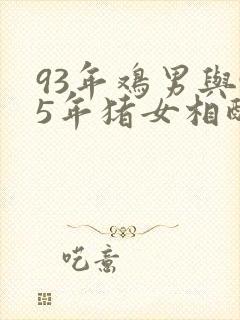 93年鸡男與
5年猪女相
呓意